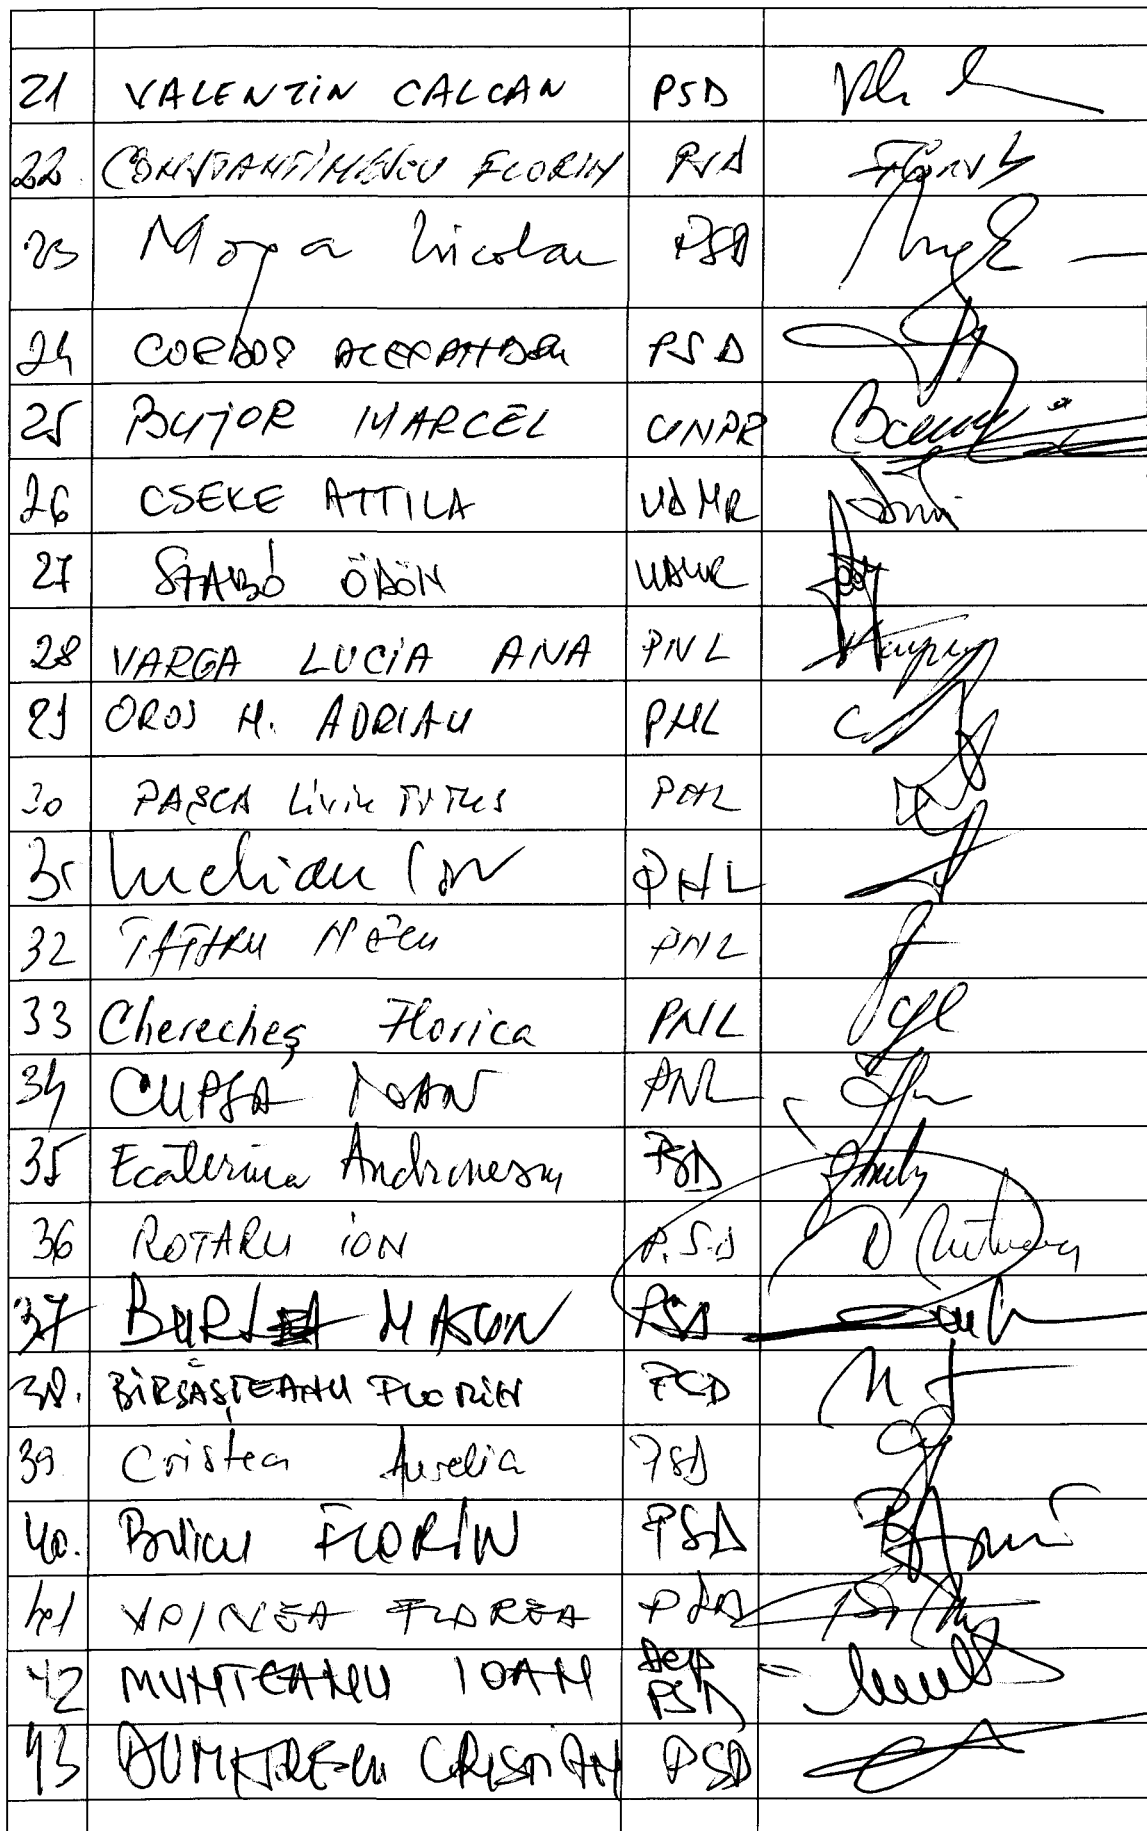 21 VALENTIN CALCAN PSD
22. CONSTANTINESCU FLORIN PSD
23 Moga Nicolae PSD
24 CORDOȘ ALEXANDRU PSD
25 BUJOR MARCEL UNPR
26 CSEKE ATTILA UDMR
27 SZABÓ ÖDÖN UDMR
28 VARGA LUCIA ANA PNL
29 OROS N. ADRIAN PNL
30 PAȘCA Liviu TITUS PNL
31 Luchian Ion PNL
32 TĂTARU NELU PNL
33 Cherecheș Florica PNL
34 CUPȘA IOAN PNL
35 Ecaterina Andronescu PSD
36 ROTARU ION P.S.D
37 BURLEA MARIN PSD
38. BÎRSĂȘTEANU FLORIN PSD
39. Cristea Aurelia PSD
40. Buicu FLORIN PSD
41 VOINEA FLOREA PSD
42 MUNTEANU IOAN Dep PSD
43 DUMITRESCU CRISTIAN PSD